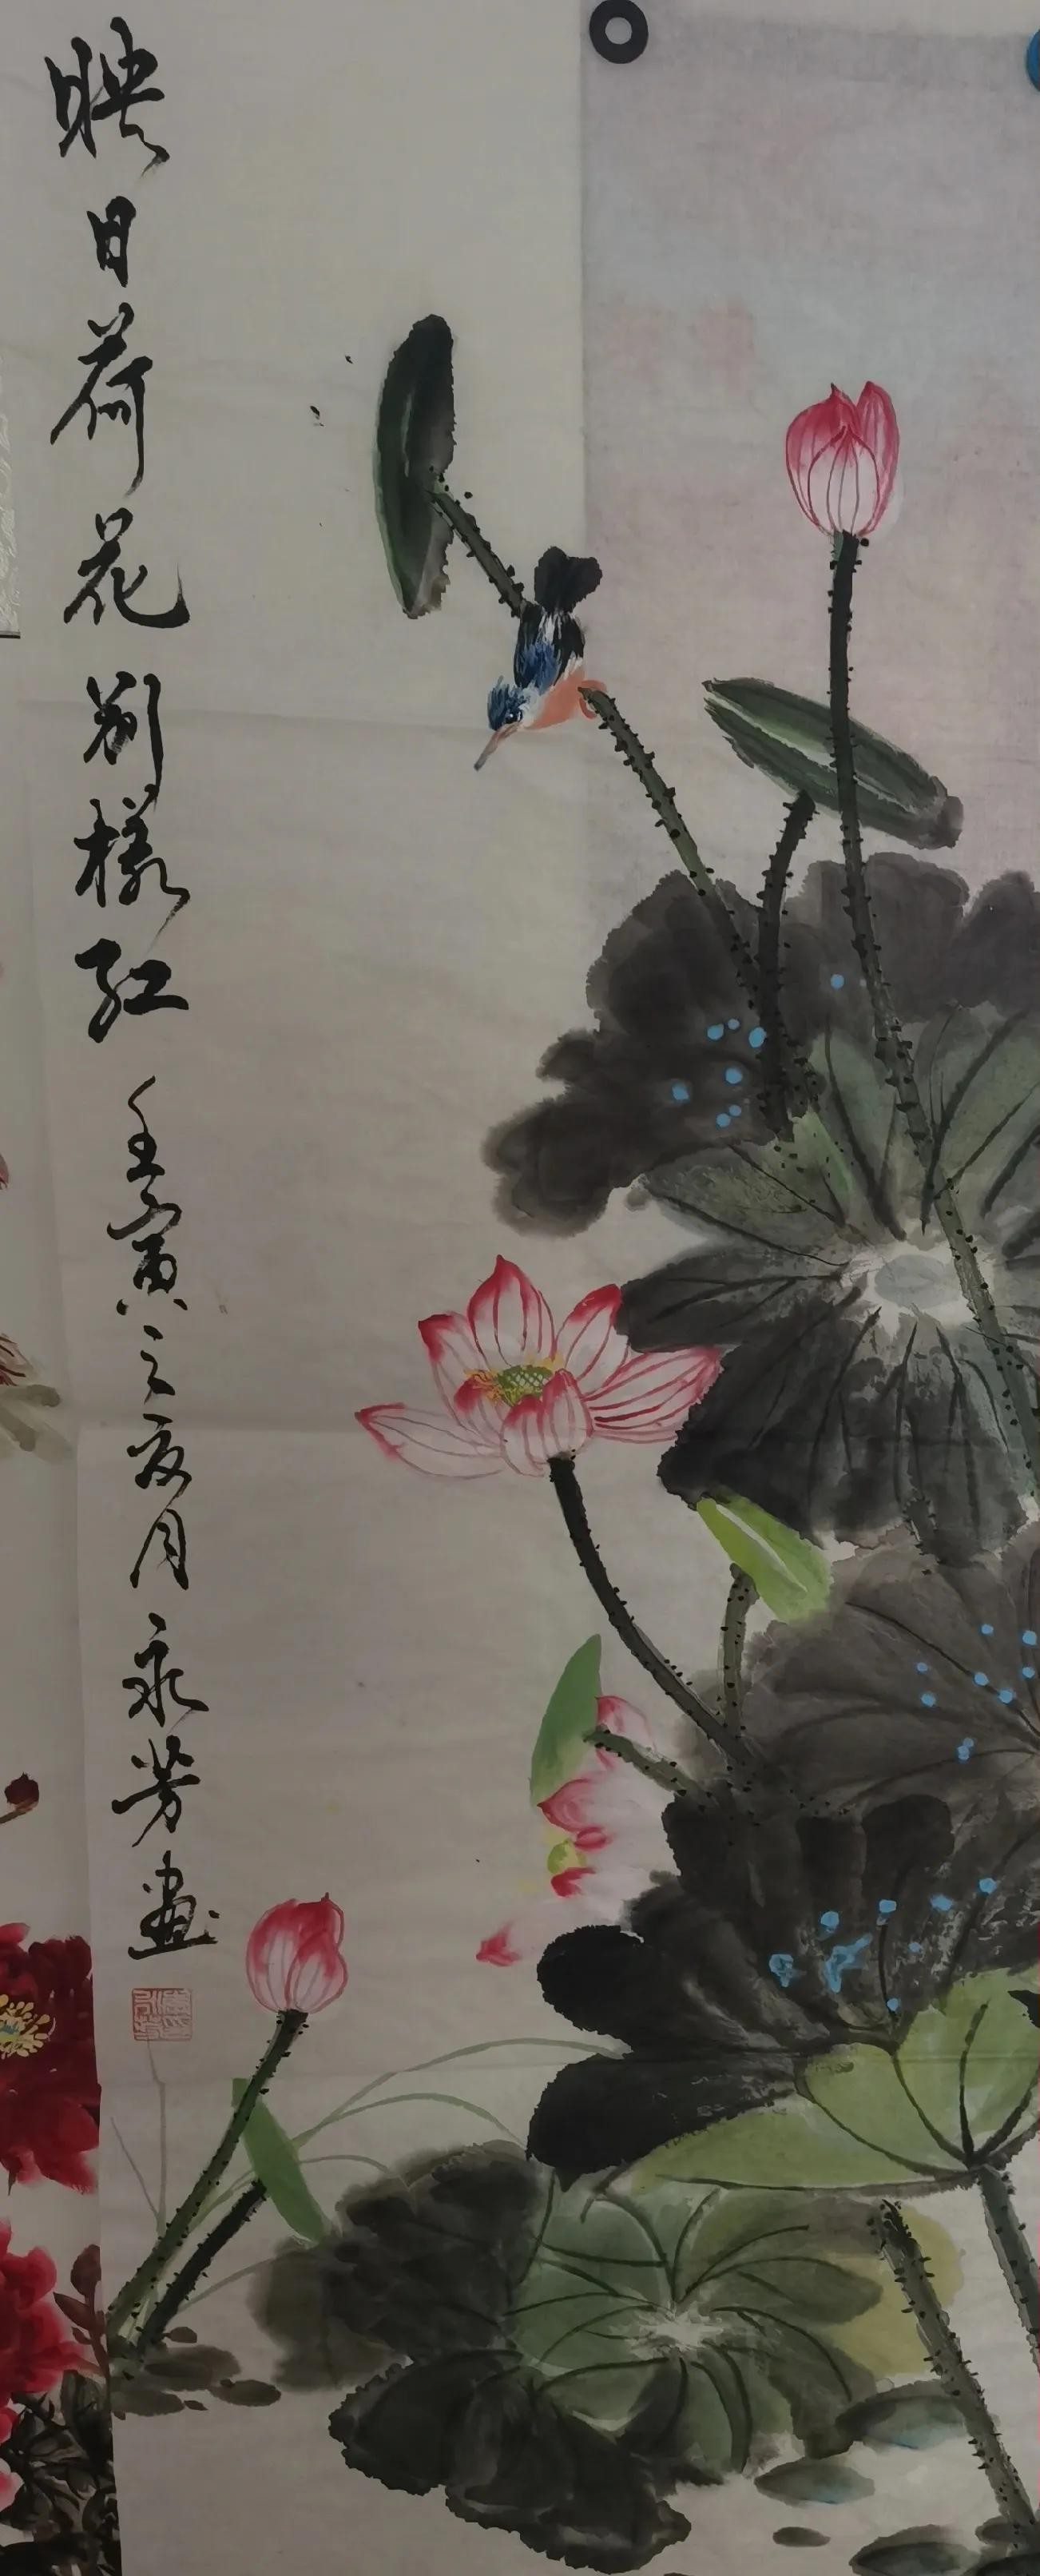 映日荷花别樣红 壬寅之夏月 永芳畫